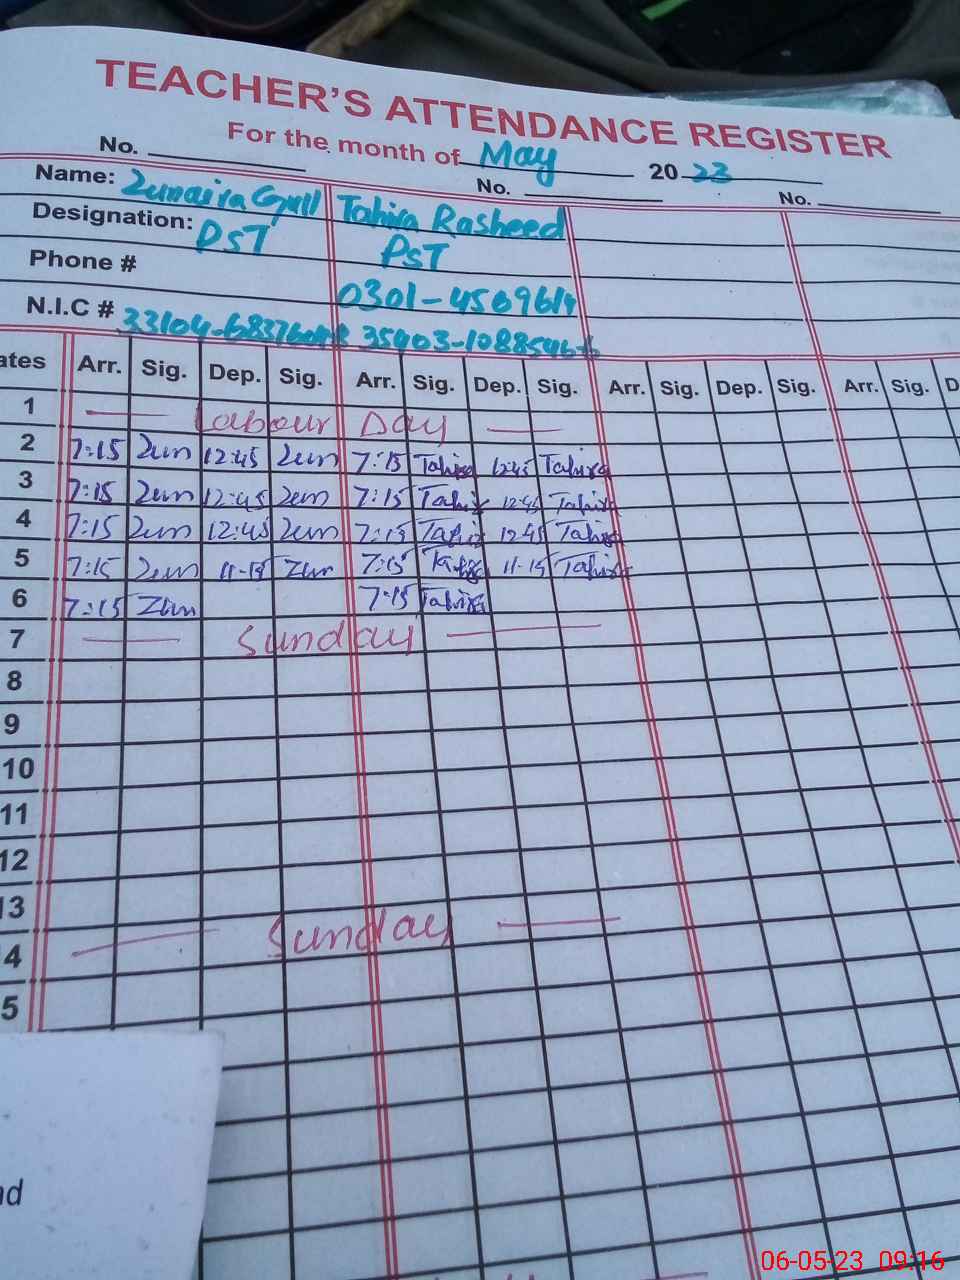 TEACHER'S ATTENDANCE REGISTER
For the month of May 2023
No. No. No.
Name: Zunaira Gull Tahira Rasheed
Designation: PST PST
Phone #
N.I.C #
ates Arr. Sig. Dep. Sig. Arr. Sig. Dep. Sig. Arr. Sig. Dep. Sig. Arr. Sig. D
1 Labour Day
2 7:15 Zun 12:45 Zun 7:15 Tahira 12:45 Tahira
3 7:15 Zun 12:45 Zun 7:15 Tahira 12:45 Tahira
4 7:15 Zun 12:45 Zun 7:15 Tahira 12:45 Tahira
5 7:15 Zun 11-15 Zun 7:15 Tahira 11-15 Tahira
6 7:15 Zun 7:15 Tahira
7 Sunday
8
9
10
11
12
13
4 Sunday
5
nd
06-05-23 09:16